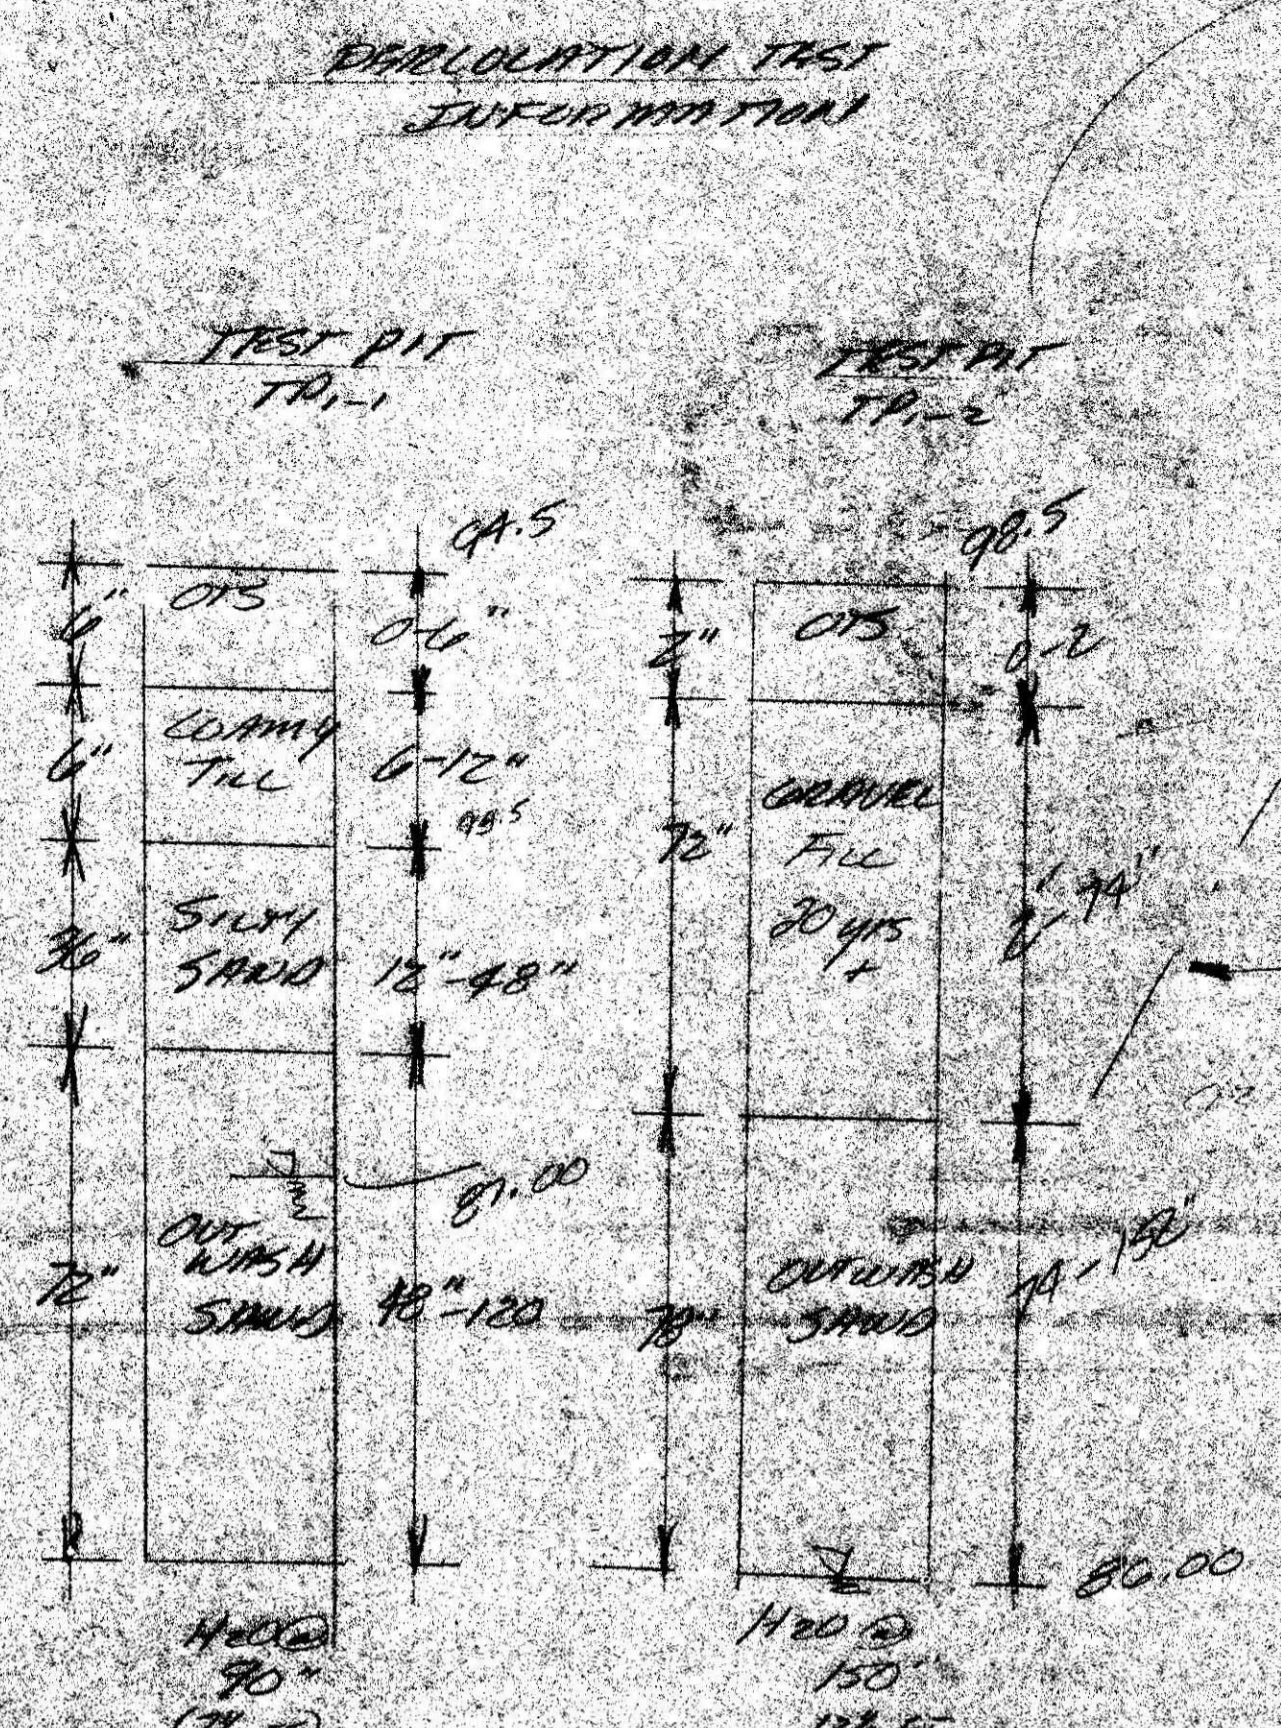 PERCOLATION TEST
INFORMATION
TEST PIT
TP1-1
94.5
6"
OTS
0-6"
6"
LOAMY
TILL
6-12"
93.5
36"
SILTY
SAND
12"-48"
87.00
72"
OUT
WASH
SAND
48"-120
H2O @
90"
TEST PIT
TP1-2
98.5
2"
OTS
0-2
72"
GRAVEL
FILL
20 yrs
+
2'-74"
78"
OUTWASH
SAND
74'-150"
86.00
H2O @
150"